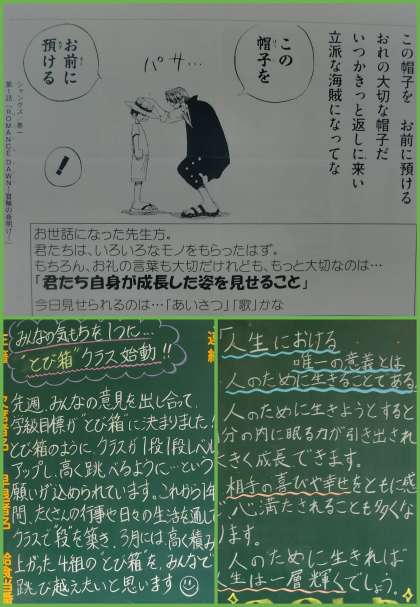 この帽子を お前に預ける
おれの大切な帽子だ
いつかきっと返しに来い
立派な海賊になってな
この
帽子を
パサ…
お前に
預ける
！
シャンクス・巻一
第1話「ROMANCE DAWN―冒険の夜明け―」
お世話になった先生方。
君たちは、いろいろなモノをもらったはず。
もちろん、お礼の言葉も大切だけれども、もっと大切なのは…
「君たち自身が成長した姿を見せること」
今日見せられるのは…「あいさつ」「歌」かな
みんなの気もちを1つに…
"とび箱"クラス始動!!
先週、みんなの意見を出し合って
学級目標が"とび箱"に決まりました!
とび箱のように、クラスが1段1段レベル
アップし、高く跳べるように…という
願いが込められています。これから1年
間、たくさんの行事や日々の生活を通して
クラスで"段"を築き、3月には、高く積み
上がった4組の"とび箱"を、みんなで
跳び越えたいと思います
給食当番
連絡
「人生における
唯一の意義とは
人のために生きることである
人のために生きようとすると
分の内に眠る力が引き出され
きく成長できます。
相手の喜びや幸せをともに感
心満たされることも多くな
ます。
人のために生きれば
人生は一層輝くでしょう。